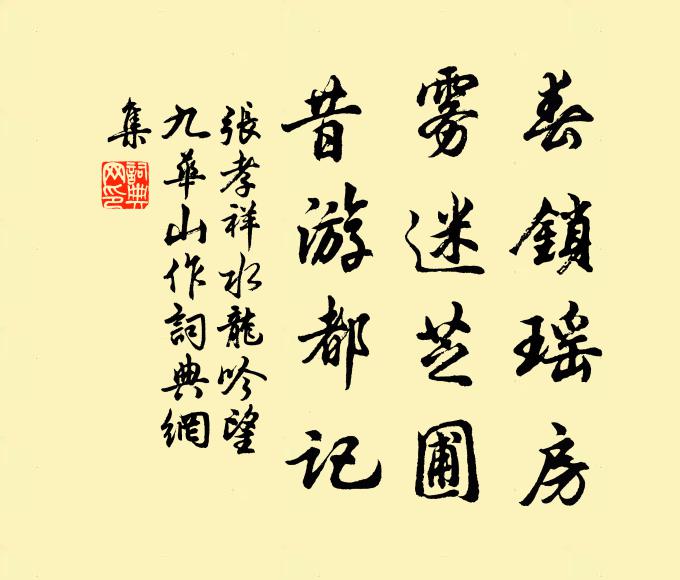 春鎖瑶房
雾迷芝圃
昔游都记
張孝祥水龍吟望
九華山作詞典網
集
詞典
网印